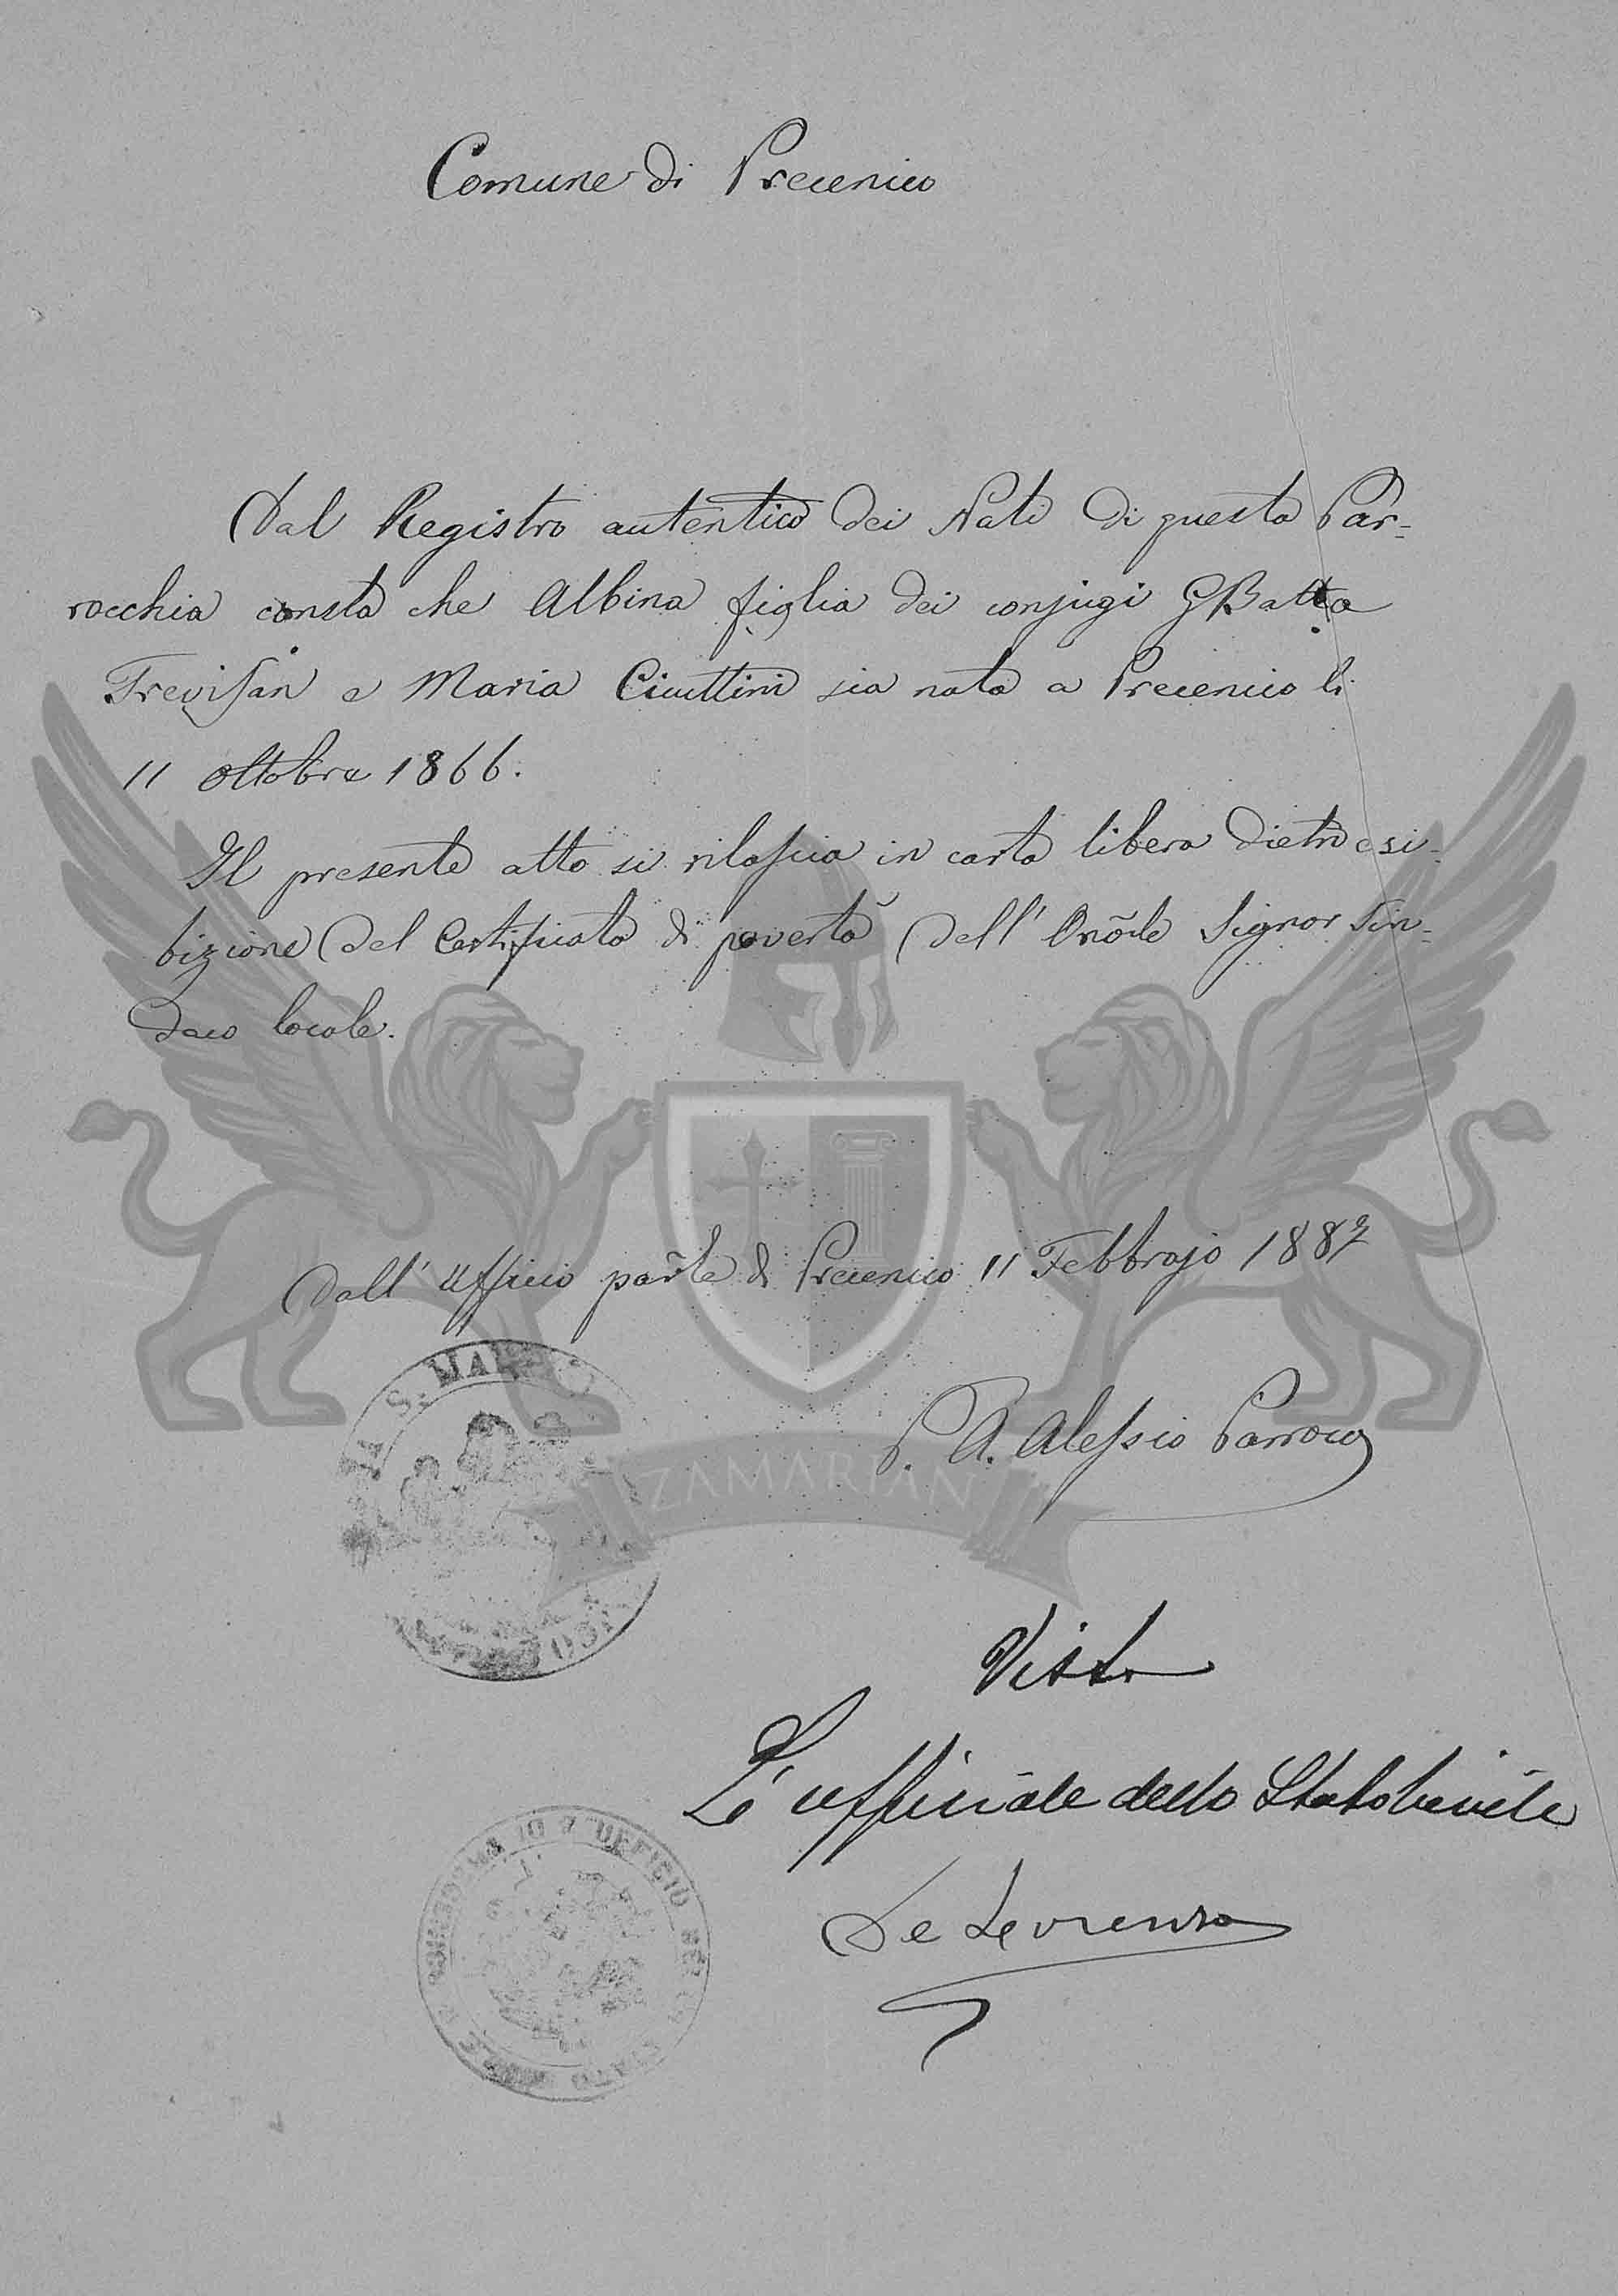 Comune di Precenico
Dal Registro autentico dei Nati di questa Par=
rocchia consta che Albina figlia dei conjugi GBatta
Trevisan e Maria Cicuttini sia nata a Precenico li
11 Ottobre 1866.
Il presente atto si rilascia in carta libera dietro esi=
bizione del Certificato di povertà dell' Onõle Signor Sin=
daco locale.
Dall' Ufficio par̃le di Precenico 11 Febbrajo 1887
P. A. Alessio Parroco
S. MAR
ZAMARIAN
Visto
L'ufficiale dello Stato Civile
De Lorenzo
UFFICIO
STATO